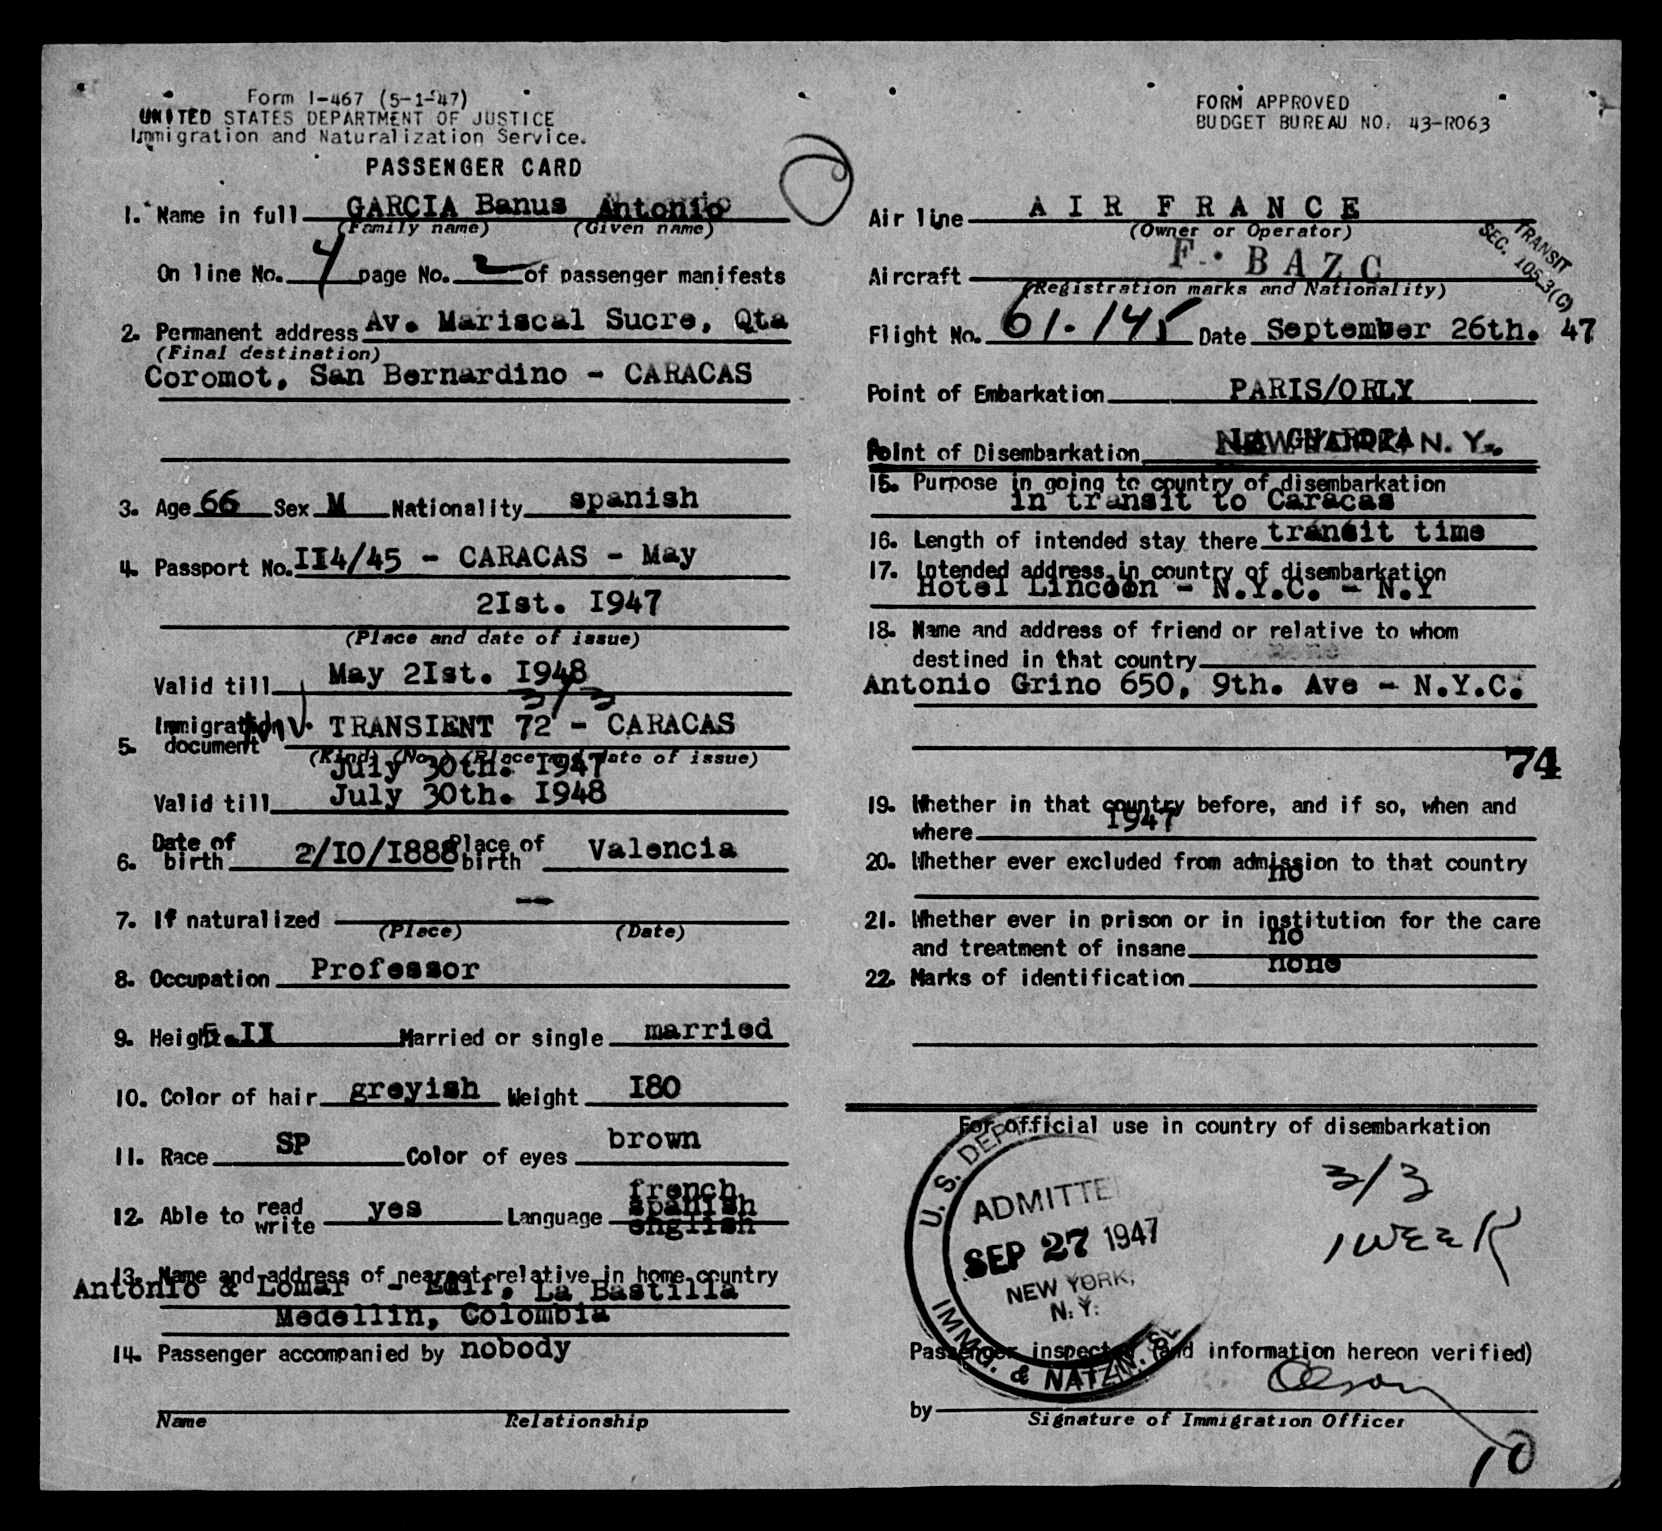 Form I-467 (5-1-47)
UNITED STATES DEPARTMENT OF JUSTICE
Immigration and Naturalization Service.
PASSENGER CARD
1. Name in full GARCIA Banus Antonio
(Family name) (Given name)
On line No. 4 page No. 2 of passenger manifests
2. Permanent address Av. Mariscal Sucre, Qta
(Final destination)
Coromot, San Bernardino - CARACAS
3. Age 66 Sex M Nationality spanish
4. Passport No. II4/45 - CARACAS - May
2Ist. I947
(Place and date of issue)
Valid till May 2Ist. I948
3/3
5. Immigration document TRANSIENT 72 - CARACAS
(Kind) (No.) (Place and date of issue)
July 30th. I947
Valid till July 30th. I948
6. Date of birth 2/IO/I888 Place of birth Valencia
7. If naturalized --
(Place) (Date)
8. Occupation Professor
9. Height 5.II Married or single married
10. Color of hair greyish Weight I80
11. Race SP Color of eyes brown
12. Able to read write yes Language french spanish english
13. Name and address of nearest relative in home country
Antonio & Lomar - Edif. La Bastilla
Medellin, Colombia
14. Passenger accompanied by nobody
Name Relationship
FORM APPROVED
BUDGET BUREAU NO. 43-R063
Air line AIR FRANCE
(Owner or Operator)
TRANSIT
SEC. 105.3(C)
Aircraft F.BAZC
(Registration marks and Nationality)
Flight No. 61.145 Date September 26th. 47
Point of Embarkation PARIS/ORLY
Point of Disembarkation LA GUARDIA NEW YORK, N. Y.
15. Purpose in going to country of disembarkation
in transit to Caracas
16. Length of intended stay there transit time
17. Intended address in country of disembarkation
Hotel Lincoln - N.Y.C. - N.Y
18. Name and address of friend or relative to whom
destined in that country none
Antonio Grino 650, 9th. Ave - N.Y.C.
74
19. Whether in that country before, and if so, when and
where I947
20. Whether ever excluded from admission to that country
no
21. Whether ever in prison or in institution for the care
and treatment of insane no
22. Marks of identification none
For official use in country of disembarkation
U. S. DEPT.
ADMITTED
SEP 27 1947
NEW YORK,
N. Y.
IMMG. & NATZN. SE
3/3
1 WEEK
Passenger inspected (and information hereon verified)
by Olson
Signature of Immigration Officer
10